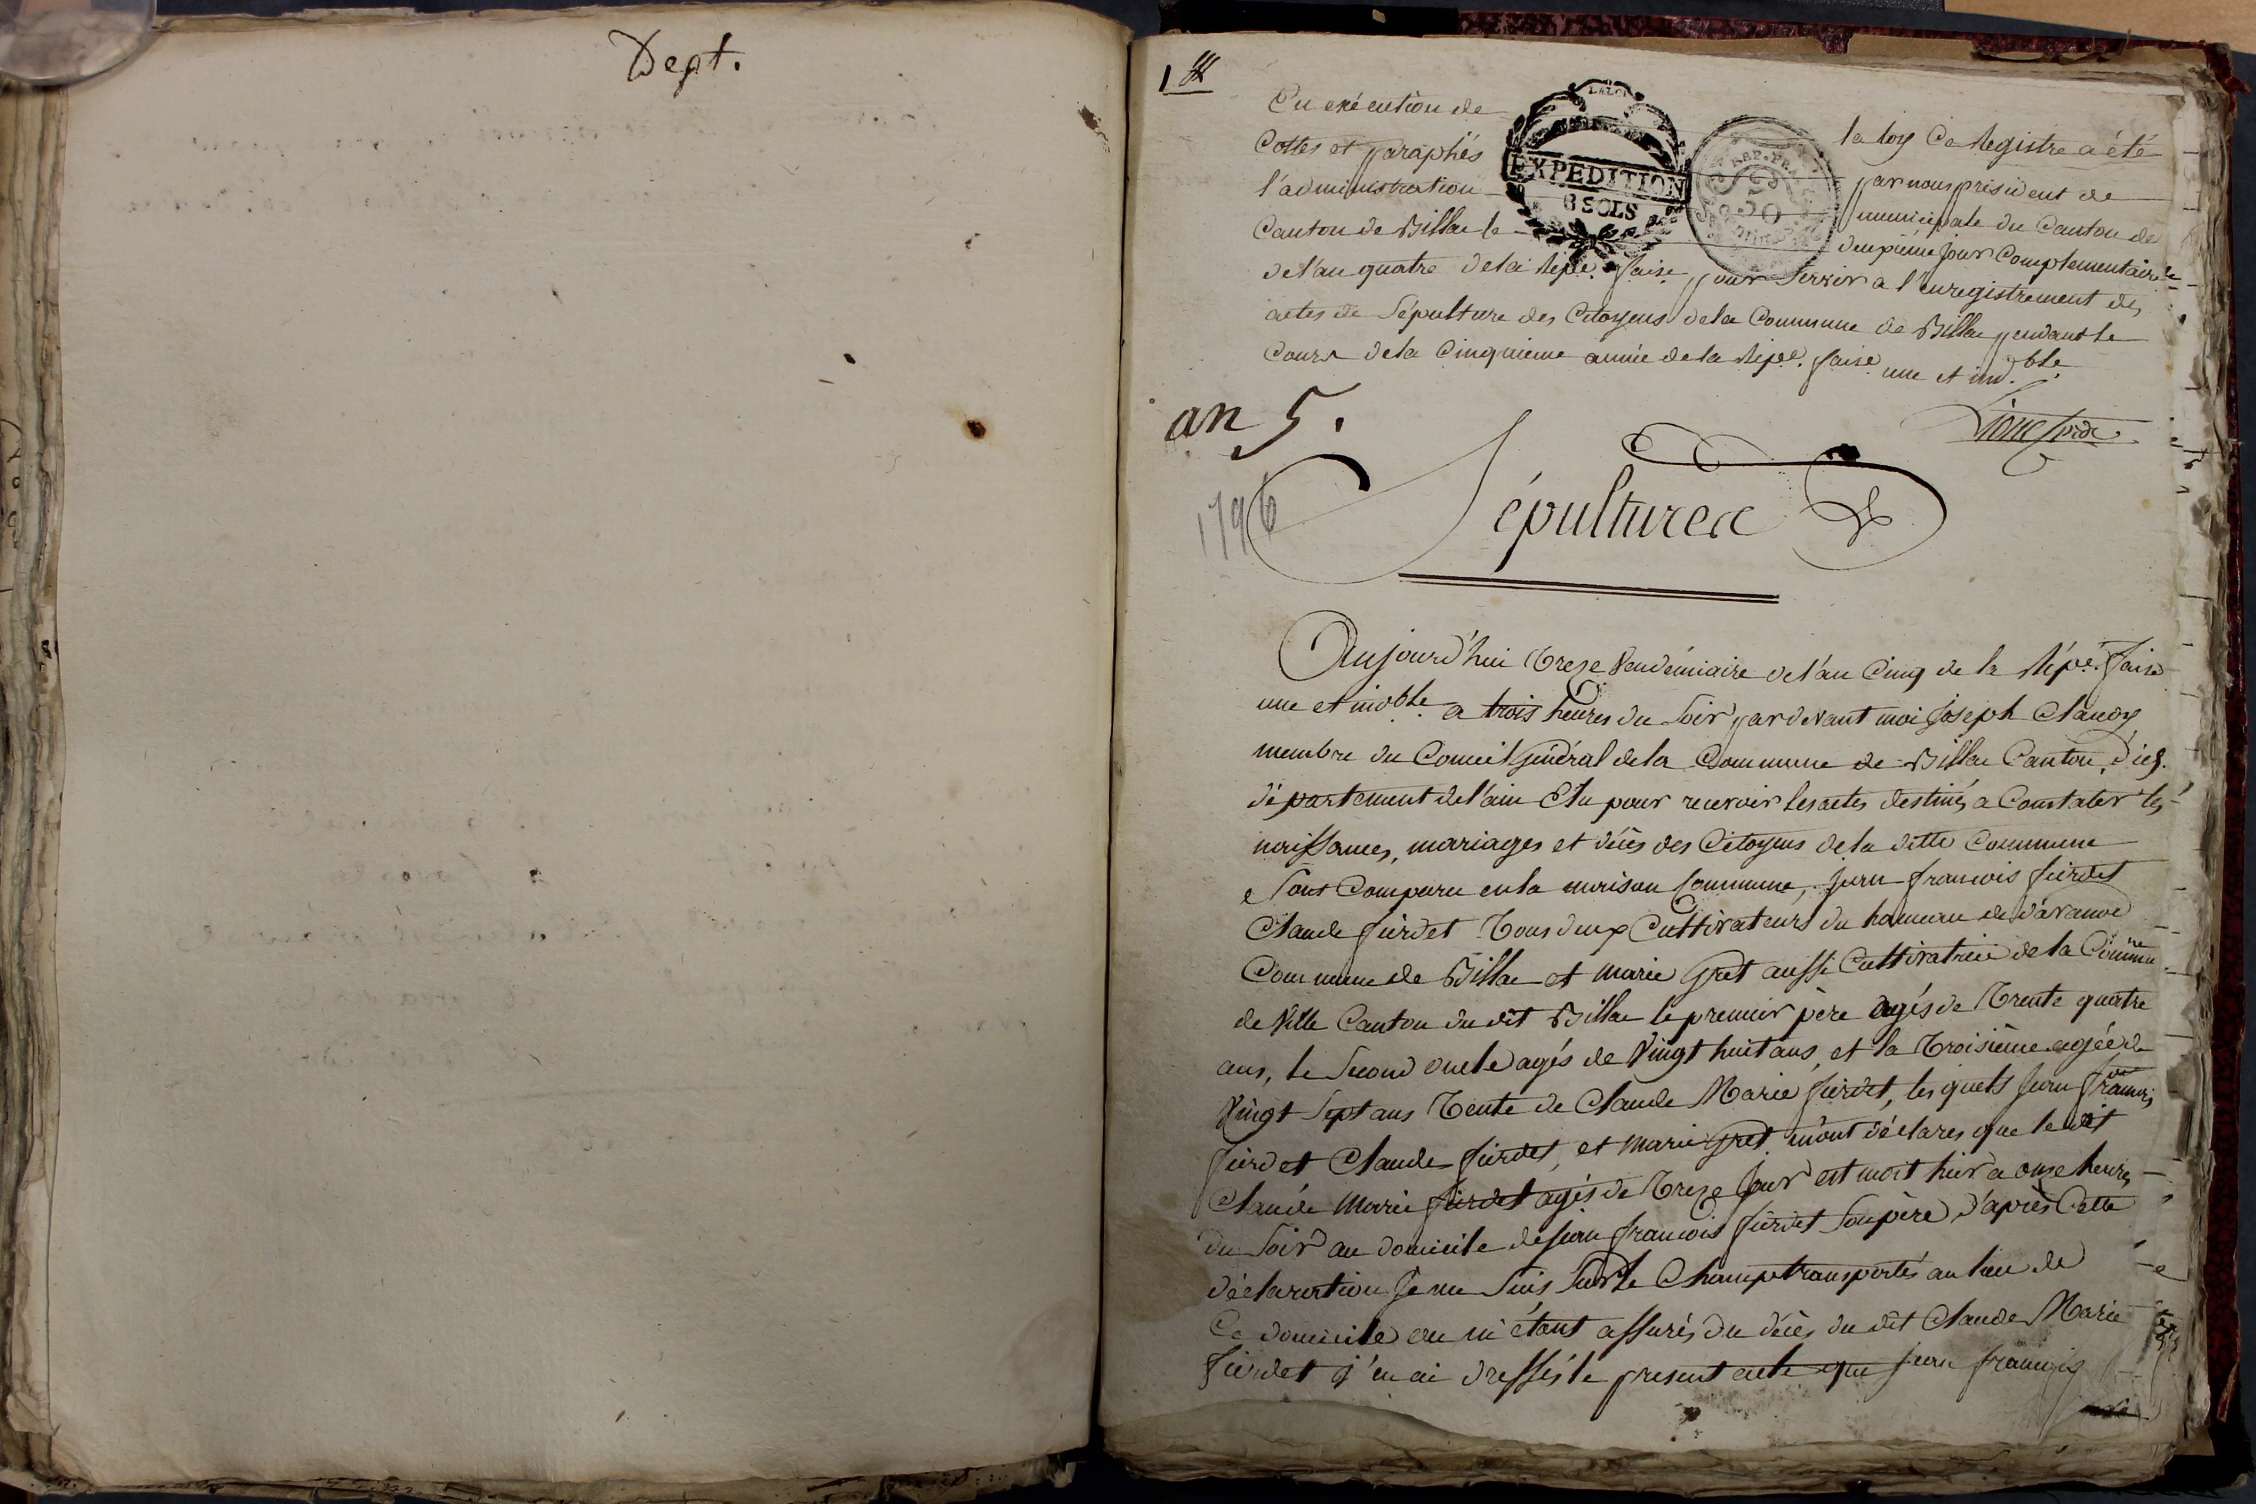 Dept.
1er
En exécution de la loy Ce Registre a été
Cottes et paraphés par nous président de
l'administration municipale du Canton de
Canton de Billac le deuxième jour Complementaire
LA LOI
EXPEDITION
6 SOLS
REP. FRA.
de l'an quatre de la Répe. faise. pour servir a l'enregistrement des
actes de Sépulture des Citoyens de la Commune de Billac pendant le
Cours de la Cinquieme année de la Répe. faise une et indble.
an 5.
1796
Sépultures
Aujourd'hui treze Vendémiaire de l'an Cinq de la Répe. faise
une et indble. a trois heures du Soir pardevant moi Joseph Claudy
membre du Conseil Général de la Commune de Billac Canton, d'icel.
département de l'ain Elu pour recevoir les actes destinés a Constater les
naissances, mariages et décès des Citoyens de la ditte Commune
Sont Comparu en la maison Commune, jean francois fierdet
Claude fierdet tous deux Cultivateurs du hameau de
Commune de Billac et marie gret aussi Cultivatrice de la Commune
de Ville Canton du dit Billac le premier père agés de trente quatre
ans, le Second oncle agés de Vingt huit ans, et la troisième agée de
Vingt Sept ans tente de Claude Marie fierdet, les quels jean francois
fierdet Claude fierdet, et marie gret m'ont déclarés que le dit
Claude Marie fierdet agés de treze jour est mort hier a onze heures
du Soir au domicile de jean francois fierdet Son père, d'après Cette
déclaration je me Suis Sur le Champ transportés au lieu de
Ce domicile ou m'étant assurés du décès du dit Claude Marie
fierdet j'en ai dressés le present acte que jean francois